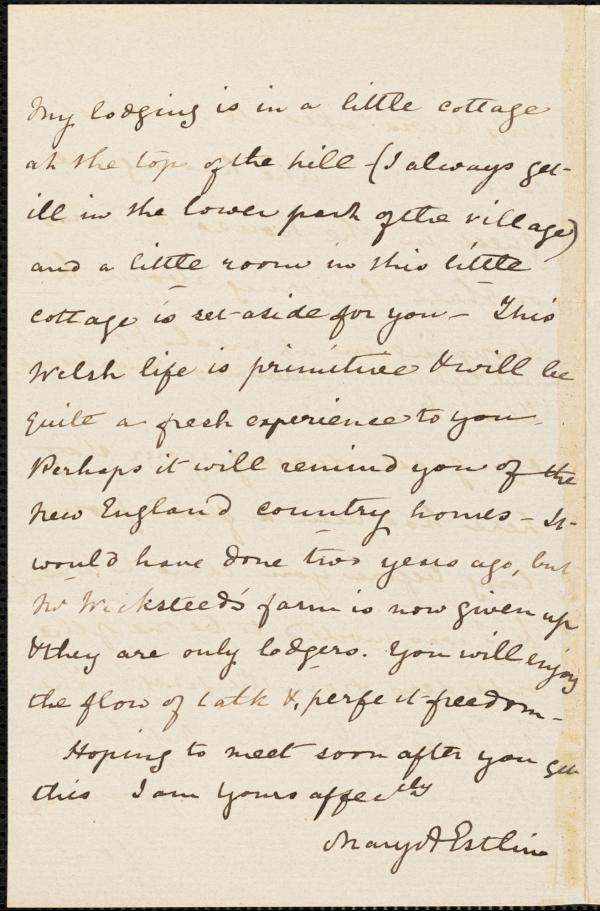 My lodging is in a little cottage
at the top of the hill - (I always get
ill in the lower part of the village)
and a little room in this little
cottage is set-aside for you - This
Welsh life is primitive & will be
quite a fresh experience to you.
Perhaps it will remind you of the
New England country homes - It
would have done two years ago, but
Mr Wicksteed's farm is now given up
& they are only lodgers. You will enjoy
the flow of talk & perfect freedom -
Hoping to meet soon after you get
this I am yours affectly
Mary A Estlin